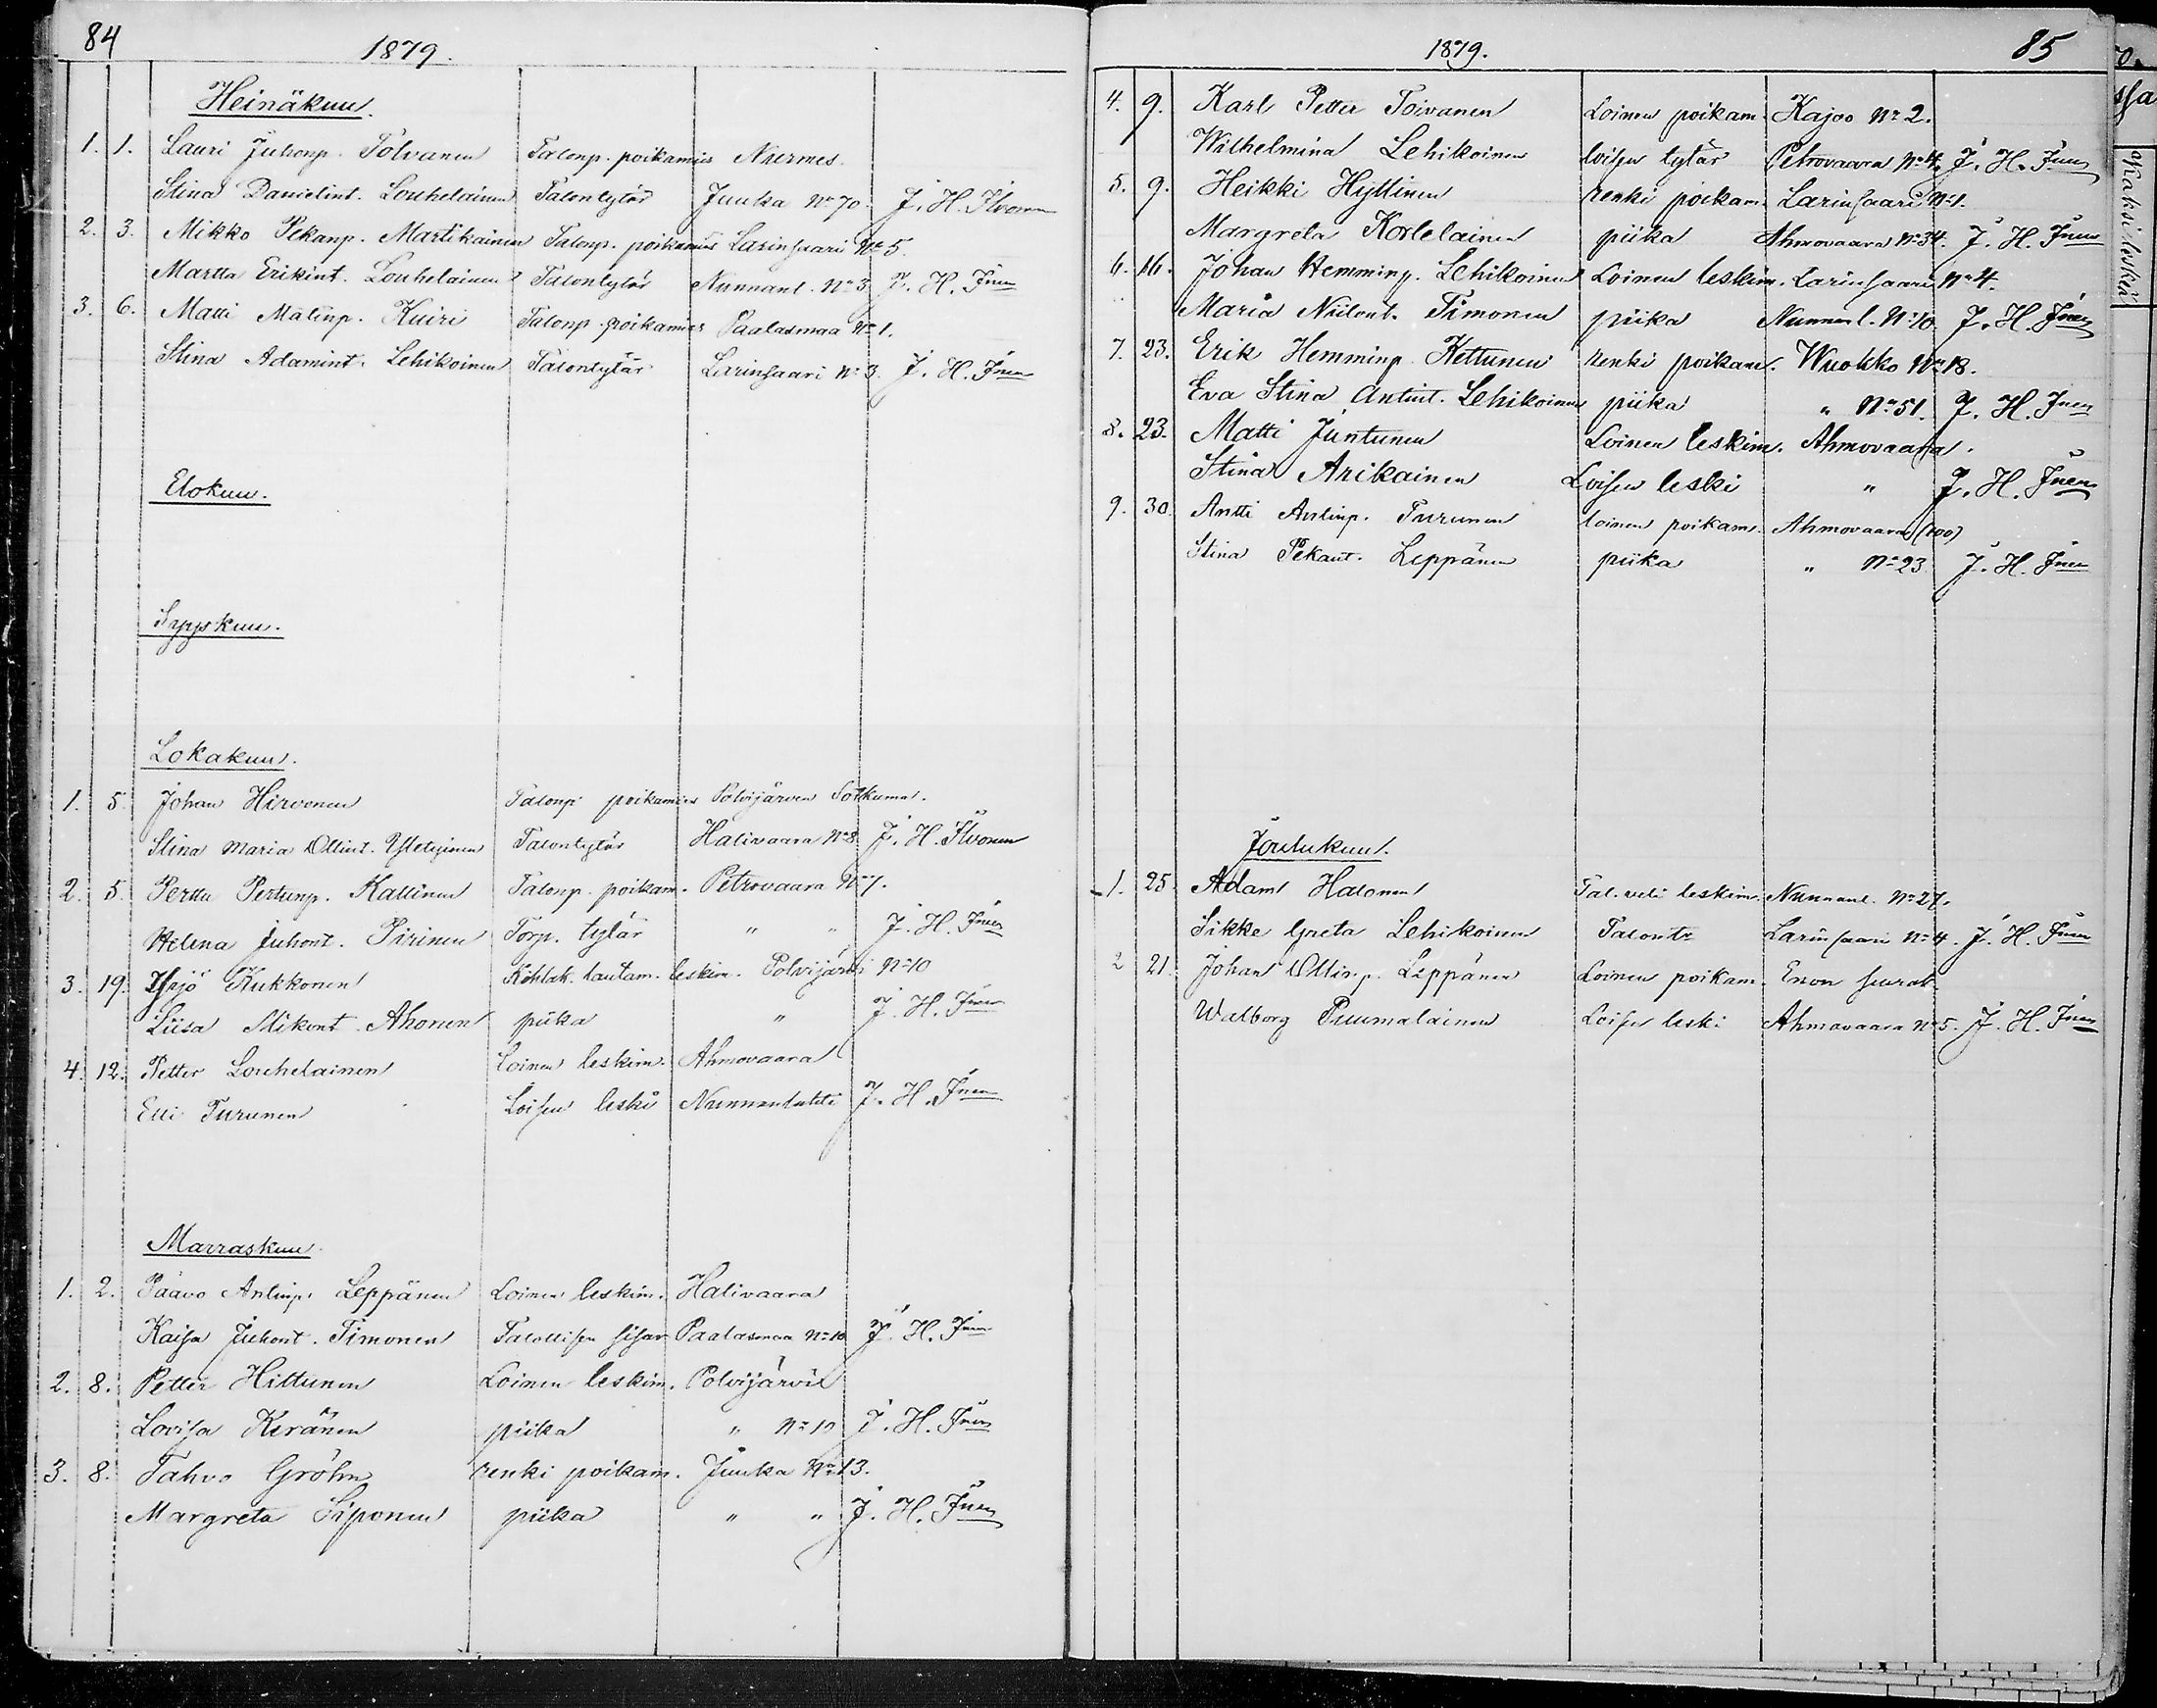 84
1879.
Heinäkuu.
1. 1. Lauri Juhonp. Tolvanen Talonp. poikamies Nurmes.
Stina Danielint. Louhelainen Talontytär Juuka No 70. J. H. Ilvonen
2. 3. Mikko Pekanp. Martikainen Talonp. poikamies Larinsaari No 5.
Martta Erikint. Louhelainen Talontytär Nunnanl. No 3. J. H. Inen
3. 6. Matti Matinp. Kuiri Talonp. poikamies Paalasmaa No 1.
Stina Adamint. Lehikoinen Talontytär Larinsaari No 3. J. H. Inen
Elokuu.
Syyskuu.
Lokakuu.
1. 5. Johan Hirvonen Talonp. poikamies Polvijärven Sotkuma.
Stina Maria Ollint. Talontytär Halivaara No 8. J. H. Ilvonen
2. 5. Perttu Pertunp. Kattinen Talonp. poikam. Petrovaara No 7.
Helena Juhont. Pirinen Torp. tytär " " J. H. Inen
3. 19. Yrjö Kukkonen Kihlak. lautam. leskim. Polvijärvi No 10
Liisa Mikont. Ahonen piika " J. H. Inen
4. 12. Petter Louhelainen Loinen leskim. Ahmovaara
Elli Turunen Loisen leski Nunnanlahti J. H. Inen
Marraskuu.
1. 2. Paavo Antinp. Leppänen Loinen leskim. Halivaara
Kaisa Juhont. Timonen Talollisen sisar Paalasmaa No 10 J. H. Inen
2. 8. Petter Hiltunen Loinen leskim. Polvijärvi
Lovisa Keränen piika " No 10 J. H. Inen
3. 8. Tahvo Gröhn renki poikam. Juuka No 13.
Margreta Siponen piika " " J. H. Inen
1879.
85
4. 9. Karl Petter Toivanen Loinen poikam. Kajoo No 2.
Wilhelmina Lehikoinen loisen tytär Petrovaara No 4. J. H. Inen
5. 9. Heikki Hyttinen renki poikam. Larinsaari No 1.
Margreta Kortelainen piika Ahmovaara No 34. J. H. Inen
6. 16. Johan Hemminp. Lehikoinen Loinen leskim. Larinsaari No 4.
Maria Niilont. Timonen piika Nunnanl. No 10. J. H. Inen
7. 23. Erik Hemminp. Kettunen renki poikam. Wuokko No 18.
Eva Stina Antint. Lehikoinen piika " No 51. J. H. Inen
8. 23. Matti Juntunen Loinen leskim. Ahmovaara.
Stina Arikainen Loisen leski " J. H. Inen
9. 30. Antti Antinp. Turunen loinen poikam. Ahmovaara (100)
Stina Pekant. Leppänen piika " No 23. J. H. Inen
Joulukuu.
1. 25. Adam Halonen Tal. veli leskim. Nunnanl. No 27.
Sikke Greta Lehikoinen Talontr Larinsaari No 4. J. H. Inen
2 21. Johan Ollinp. Leppänen Loinen poikam. Enon seurak.
Walborg Puumalainen Loisen leski Ahmovaara No 5. J. H. Inen